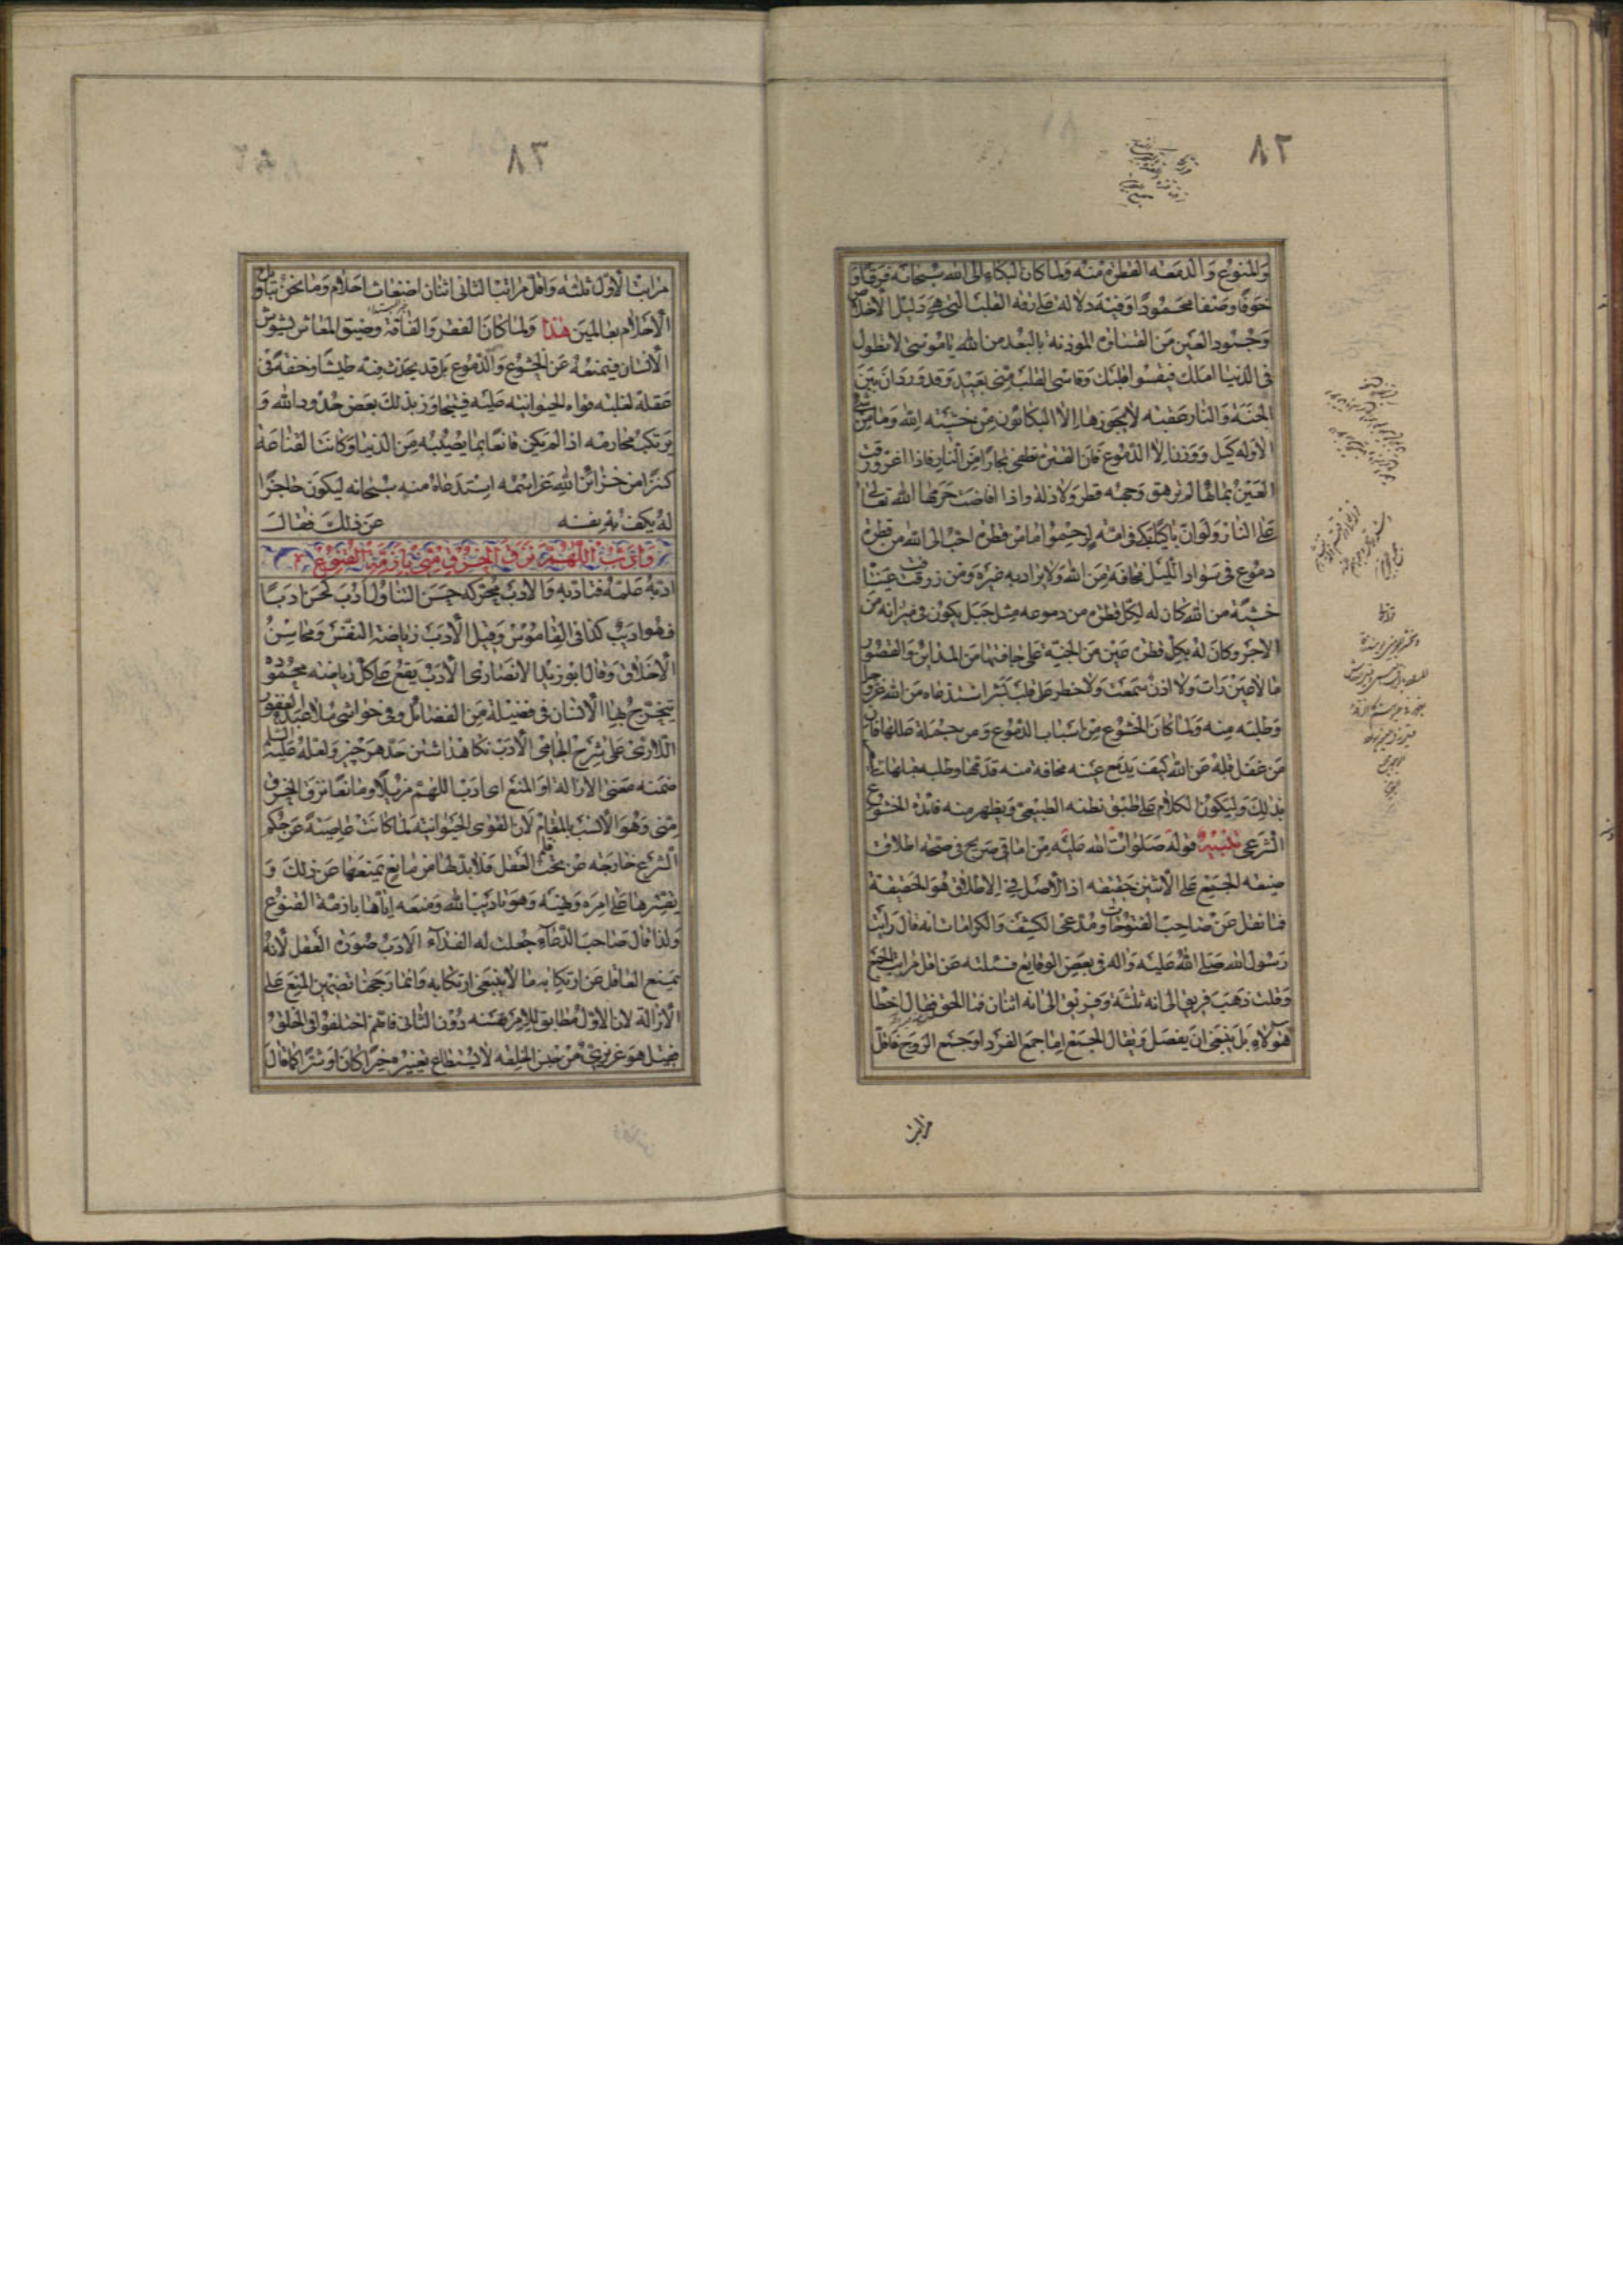 ٨٢
والمنوع والدمعه القطرة منه ولما كان البكاء الى الله سبحانه فرقا و
خوفا وصفا محمودا وفيه دلالة على رقه القلب التي هي دليل الاخلاص
وجمود العين من القساوه الموذنة بالبعد من الله يا موسى لا تطول
في الدنيا املك فيقسو قلبك وقاسى القلب منى بعيد وقد ورد ان بين
الجنة والنار عقبه لا يجوزها الا البكاؤن من خشيته الله وما من شئ
الا وله كيل ووزن الا الدموع فان القطرة تطفى بحارا من النار فاذا اغرورقت
العين بمائها لم يرهق وجهه قطر ولا ذلة واذا افاضت حرمها الله تعالى
على النار ولو ان باكيا بكى في امة لرحموا وما من قطرة احب الى الله من قطرة
دموع في سواد الليل مخافة من الله ولا يراد به غيره ومن ذرفت عينا
خشية من الله كان له لكل قطرة من دموعه مثل جبل يكون في ميزانه من
الاجر وكان له بكل قطرة عين من الجنة على حافتها من المداين والقصور
ما لا عين رات ولا اذن سمعت ولا خطر على قلب بشر استدعاه من الله عز وجل
وطلبه منه ولما كان الخشوع من اسباب الدموع ومن جملة عللها فان
من غفل قلبه عن الله كيف يدمع عينه مخافة منه قدمها وطلبه
بذلك وليكون الكلام على طبق نظمه الطبيعى ويظهر منه فائدة الخشوع
الشرعى تنبيه قوله صلوات الله عليه من اماقى صريح في صحة اطلاق
صيغه الجمع على الاثنين حقيقه اذ الاصل في الاطلاق هو الحقيقة
فما نقل عن صاحب الفتوحات ومدعى الكشف والكرامات انه قال رايت
رسول الله صلى الله عليه واله في بعض الوقايع فسئلته عن اقل مراتب الجمع
وقلت ذهب فريق الى انه ثلثة وفريق الى انه اثنان فما الحق فقال اخطا
هولاء بل ينبغى ان يفصل ويقال الجمع اما جمع الفرد او جمع الزوج فاقل
مراتب
٨٣
مراتب الاول ثلثه واقل مراتب الثانى اثنان اضغاث احلام وما نحن بتاويل
الاحلام بعالمين هذا ولما كان الفقر والفاقة وضيق المعاش يشوش
الانسان فيمنعه عن الخشوع والدموع بل قد يحدث فيه طيشا وخفة في
عقله لغلبه قواه الحيوانيه عليه فيتجاوز بذلك بعض حدود الله و
يرتكب محارمه اذا لم يكن قانعا بما يصيبه من الدنيا وكانت القناعة
كنزا من خزائن الله عز اسمه استدعاه منه سبحانه ليكون حاجزا
له عن ذلك فقال
وادب اللهم نزق الخرق منى بازمة القنوع
ادبه علمه فتادب والادب محركه حسن التناول ادب كحسن ادبا
فهو اديب كذا في القاموس وقيل الادب رياضة النفس ومحاسن
الاخلاق وقال ابو زيد الانصارى الادب يقع على كل رياضة محموده
يتخرج بها الانسان في فضيلة من الفضائل وفي حواشى ملا عبد الغفور
اللارى على شرح الجامى الادب نكاهداشتن حد هر چيز ولعله عليه السلم
ضمنه معنى الازالة او المنع اى ادب اللهم مزيلا ومانعا نزق الخرق
منى وهو الانسب بالمقام لان القوى الحيوانية لما كانت عاصية عن حكم
الشرع خارجه عن تحت العقل فلابد لها من مانع يمنعها عن ذلك و
يقسرها على امره ونهيه وهو تاديب الله ومنعه اياها بازمة القنوع
ولذا قال صاحب الدعاء جعلت له الفداء الادب صورة العقل لانه
يمنع العاقل عن ارتكاب ما لا ينبغى ارتكابه وانما رجحنا تضمين المنع على
الازالة لان الاول مطابق للامر نفسه دون الثانى فانهم اختلفوا في الخلق
فقيل هو غريزى من جنس الخلقه لا يستطاع تغييره خيرا كان او شرا كما قال